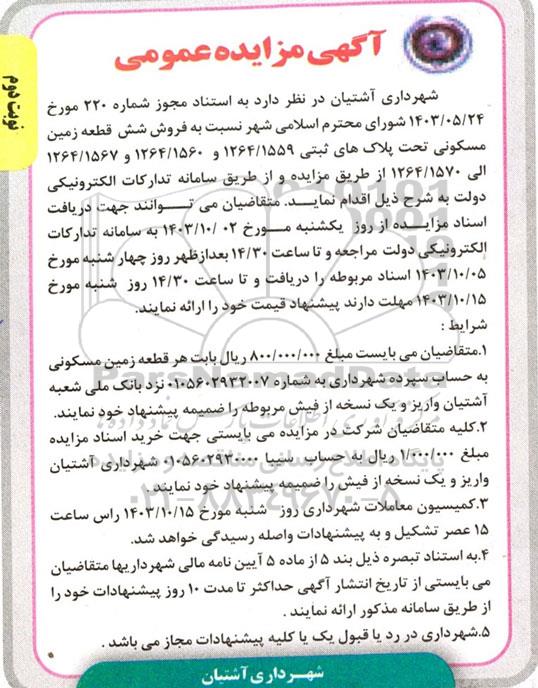 آگهی مزایده عمومی
نوبت دوم
شهرداری آشتیان در نظر دارد به استناد مجوز شماره ۲۲۰ مورخ
۱۴۰۳/۰۵/۲۴ شورای محترم اسلامی شهر نسبت به فروش شش قطعه زمین
مسکونی تحت پلاک های ثبتی ۱۲۶۴/۱۵۵۹ و ۱۲۶۴/۱۵۶۰ و ۱۲۶۴/۱۵۶۷
الی ۱۲۶۴/۱۵۷۰ از طریق مزایده و از طریق سامانه تدارکات الکترونیکی
دولت به شرح ذیل اقدام نماید. متقاضیان می توانند جهت دریافت
اسناد مزایده از روز یکشنبه مورخ ۰۲ /۱۴۰۳/۱۰ به سامانه تدارکات
الکترونیکی دولت مراجعه و تا ساعت ۱۴/۳۰ بعدازظهر روز چهار شنبه مورخ
۱۴۰۳/۱۰/۰۵ اسناد مربوطه را دریافت و تا ساعت ۱۴/۳۰ روز شنبه مورخ
۱۴۰۳/۱۰/۱۵ مهلت دارند پیشنهاد قیمت خود را ارائه نمایند.
شرایط :
۱.متقاضیان می بایست مبلغ ۸۰۰/۰۰۰/۰۰۰ ریال بابت هر قطعه زمین مسکونی
به حساب سپرده شهرداری به شماره ۰۱۰۵۶۰۲۹۳۳۰۰۷ نزد بانک ملی شعبه
آشتیان واریز و یک نسخه از فیش مربوطه را ضمیمه پیشنهاد خود نمایند.
۲.کلیه متقاضیان شرکت در مزایده می بایستی جهت خرید اسناد مزایده
مبلغ ۱/۰۰۰/۰۰۰ ریال به حساب سیبا ۰۱۰۵۶۰۲۹۳۰۰۰۰ شهرداری آشتیان
واریز و یک نسخه از فیش را ضمیمه پیشنهاد خود نمایند.
۳.کمیسیون معاملات شهرداری روز شنبه مورخ ۱۴۰۳/۱۰/۱۵ راس ساعت
۱۵ عصر تشکیل و به پیشنهادات واصله رسیدگی خواهد شد.
۴.به استناد تبصره ذیل بند ۵ از ماده ۵ آیین نامه مالی شهرداریها متقاضیان
می بایستی از تاریخ انتشار آگهی حداکثر تا مدت ۱۰ روز پیشنهادات خود را
از طریق سامانه مذکور ارائه نمایند .
۵.شهرداری در رد یا قبول یک یا کلیه پیشنهادات مجاز می باشد .
شهرداری آشتیان
ParsNamadData
۰۲۱-۸۸۳۴۹۶۷۰-۵